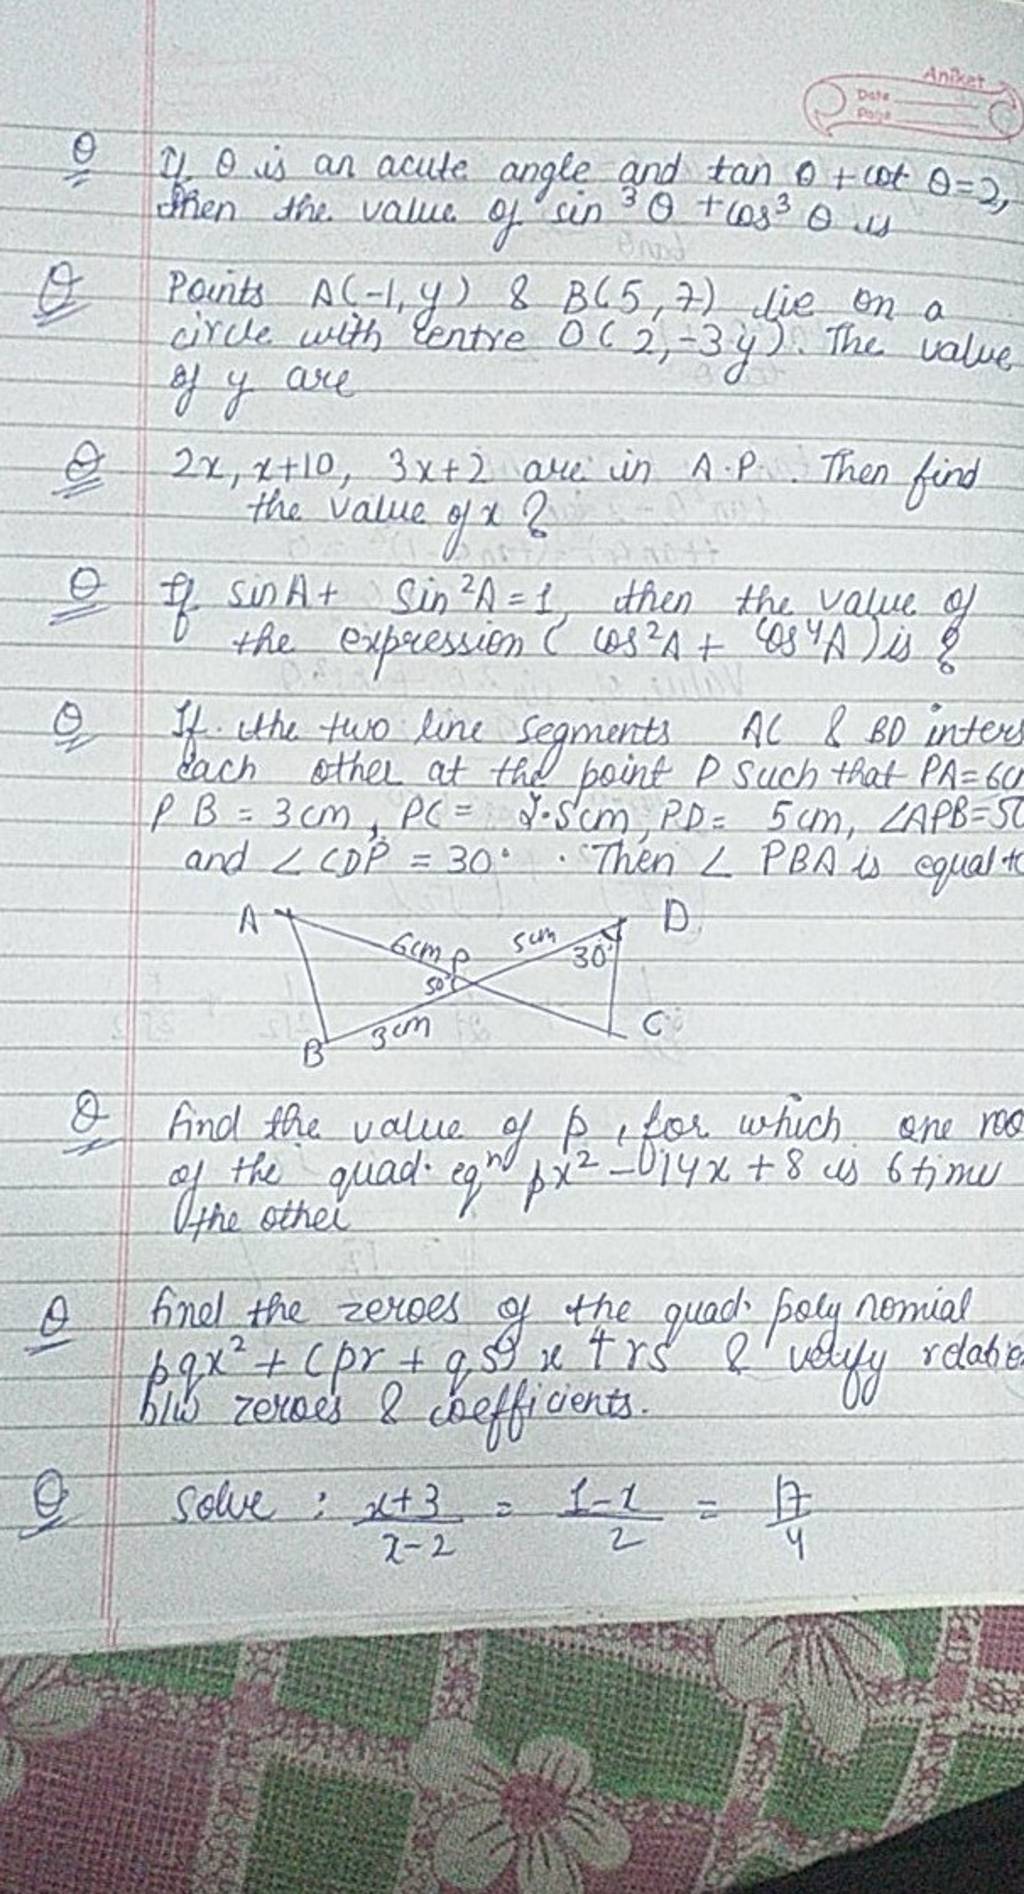 Aniket
Date
Page
Q If θ is an acute angle and tan θ + cot θ = 2,
then the value of sin³θ + cos³θ is
Q Points A(-1, y) & B(5, 7) lie on a
circle with centre O(2, -3y). The value
of y are
Q 2x, x+10, 3x+2 are in A.P. Then find
the value of x ?
Q If sin A + Sin²A = 1, then the value of
the expression (cos²A + cos⁴A) is ?
Q If the two line segments AC & BD inters
each other at the point P such that PA = 6c
PB = 3cm, PC = 2.5cm, PD = 5cm, ∠APB = 50
and ∠CDP = 30°. Then ∠ PBA is equal to
A D
6cm P 5cm 30°
50°
3cm C
B
Q find the value of p, for which one roo
of the quad. eqⁿ px² - 14x + 8 is 6 time
the other
Q find the zeroes of the quad. polynomial
pqx² + (pr + qs) x + rs & verify relatio
b/w zeroes & coefficients.
Q Solve : x+3/x-2 = 1-x/2 = 17/4